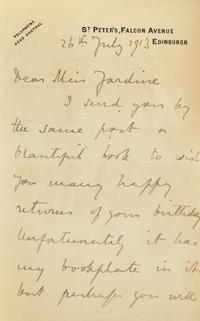 TELEPHONE
4098 CENTRAL
ST PETER'S, FALCON AVENUE
EDINBURGH
26th July 1913
Dear Miss Jardine
I send you by
the same post a
beautiful book to wish
you many happy
returns of your birthday
Unfortunately it has
my bookplate in it
but perhaps you will